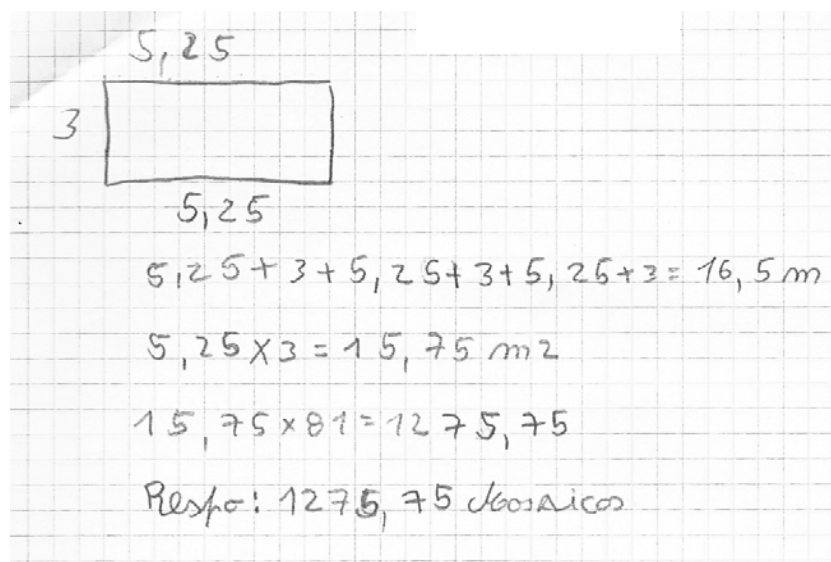 5,25
3
5,25
5,25+3+5,25+3+5,25+3=16,5m
5,25×3=15,75 m2
15,75×81=1275,75
Respo: 1275,75 Mosaicos